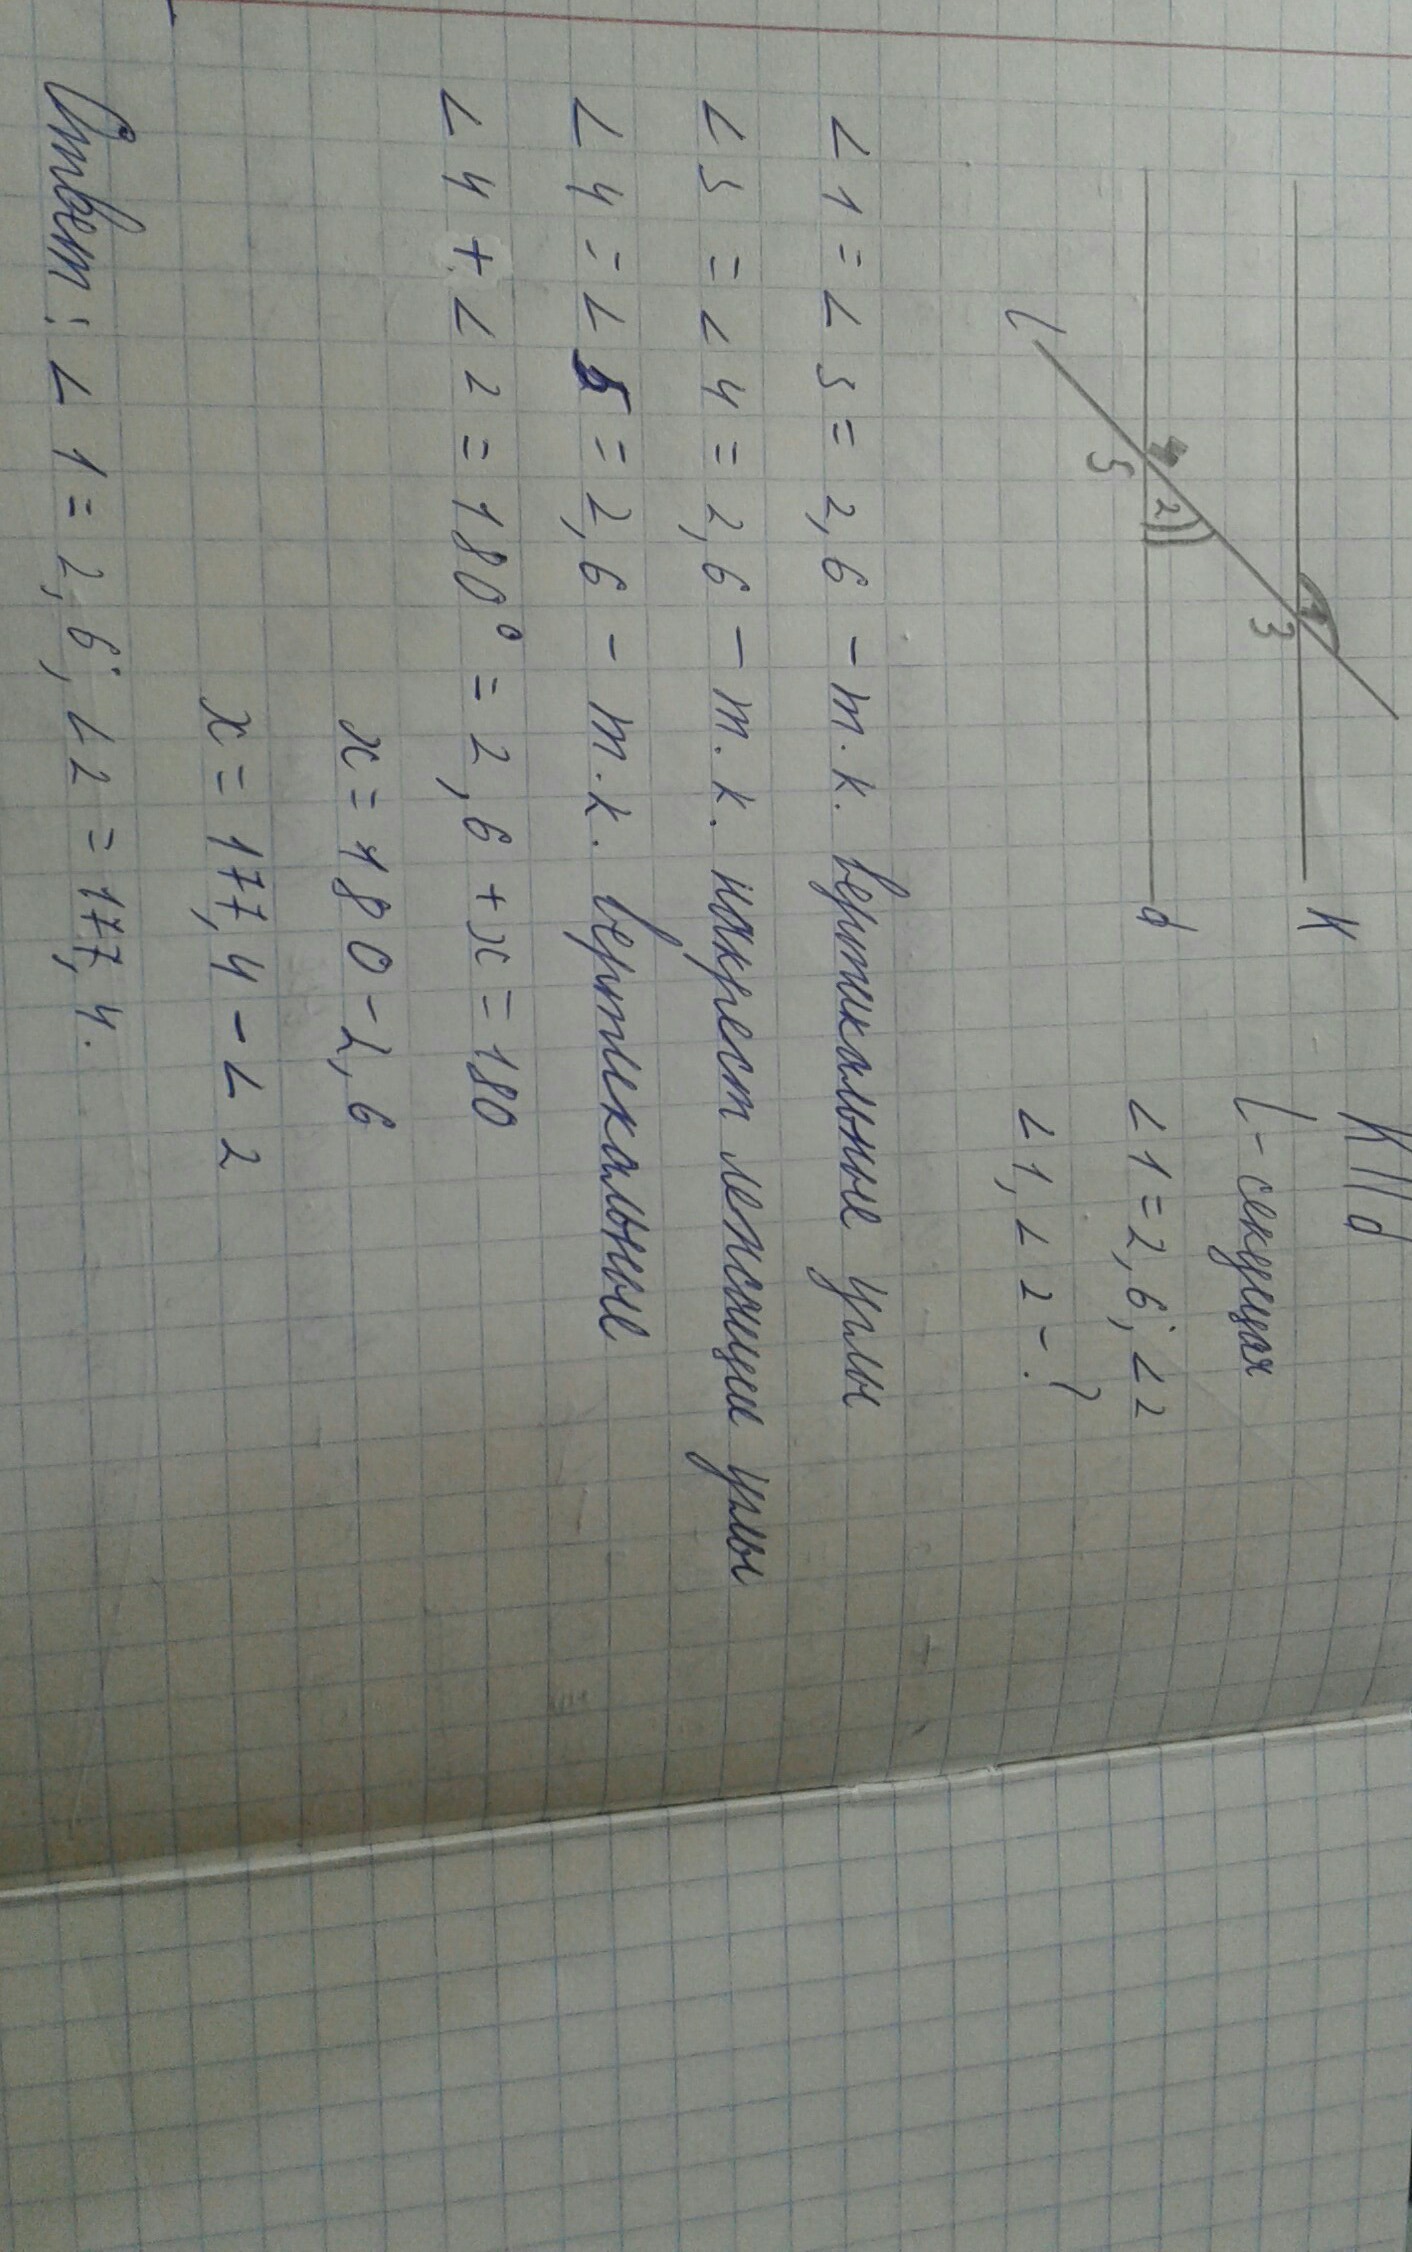 K
d
l
1
3
2
4
5
K || d
l - секущая
∠1 = 2,6; ∠2
∠1, ∠2 - ?
∠1 = ∠3 = 2,6 - т.к. вертикальные углы
∠3 = ∠4 = 2,6 - т.к. накрест лежащие углы
∠4 = ∠5 = 2,6 - т.к. вертикальные
∠4 + ∠2 = 180° = 2,6 + x = 180
x = 180 - 2,6
x = 177,4 - ∠2
Ответ: ∠1 = 2,6; ∠2 = 177,4.